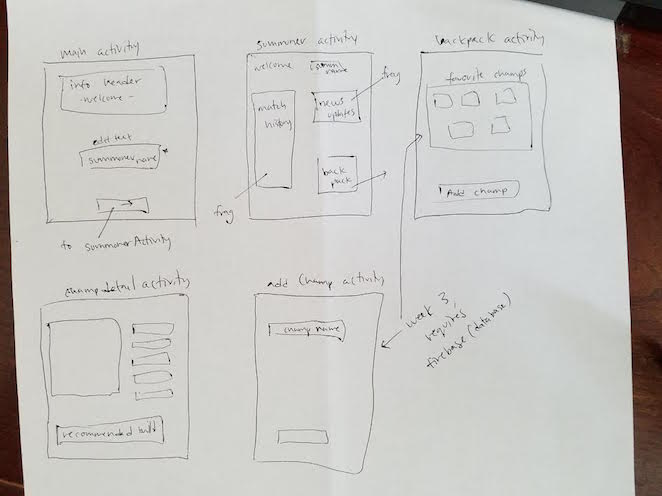 main activity
info header
-welcome-
edit text
summoner name
to summonerActivity
summoner activity
welcome
name
match
history
news
updates
back
pack
frag
frag
backpack activity
favorite champs
Add champ
champ detail activity
recommended build
add champ activity
champ name
week 3,
requires
firebase (database)